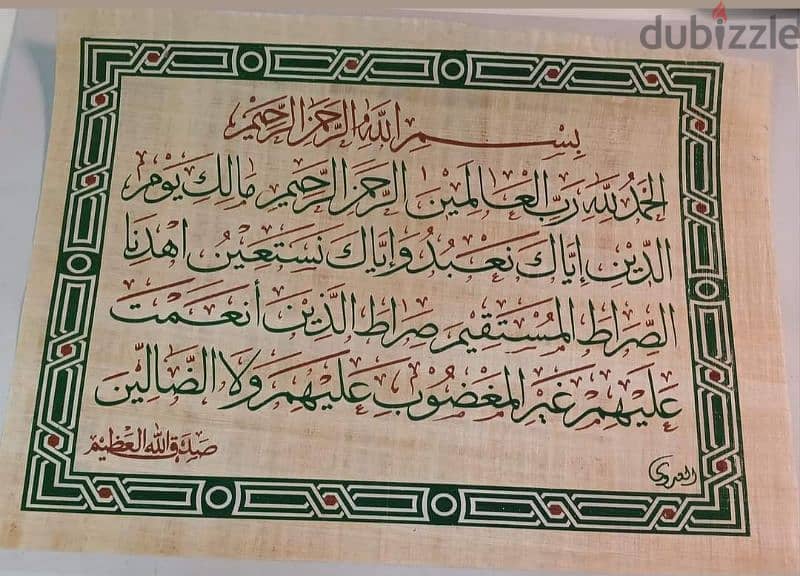 dubizzle
بِسْمِ اللهِ الرَّحْمٰنِ الرَّحِيْمِ
الحَمْدُ لِلّٰهِ رَبِّ العَالَمِيْنَ الرَّحْمٰنِ الرَّحِيْمِ مَالِكِ يَوْمِ
الدِّيْنِ إِيَّاكَ نَعْبُدُ وَإِيَّاكَ نَسْتَعِيْنُ اهْدِنَا
الصِّرَاطَ المُسْتَقِيْمَ صِرَاطَ الَّذِيْنَ أَنْعَمْتَ
عَلَيْهِمْ غَيْرِ المَغْضُوْبِ عَلَيْهِمْ وَلَا الضَّالِّيْنَ
صَدَقَ اللهُ العَظِيْم